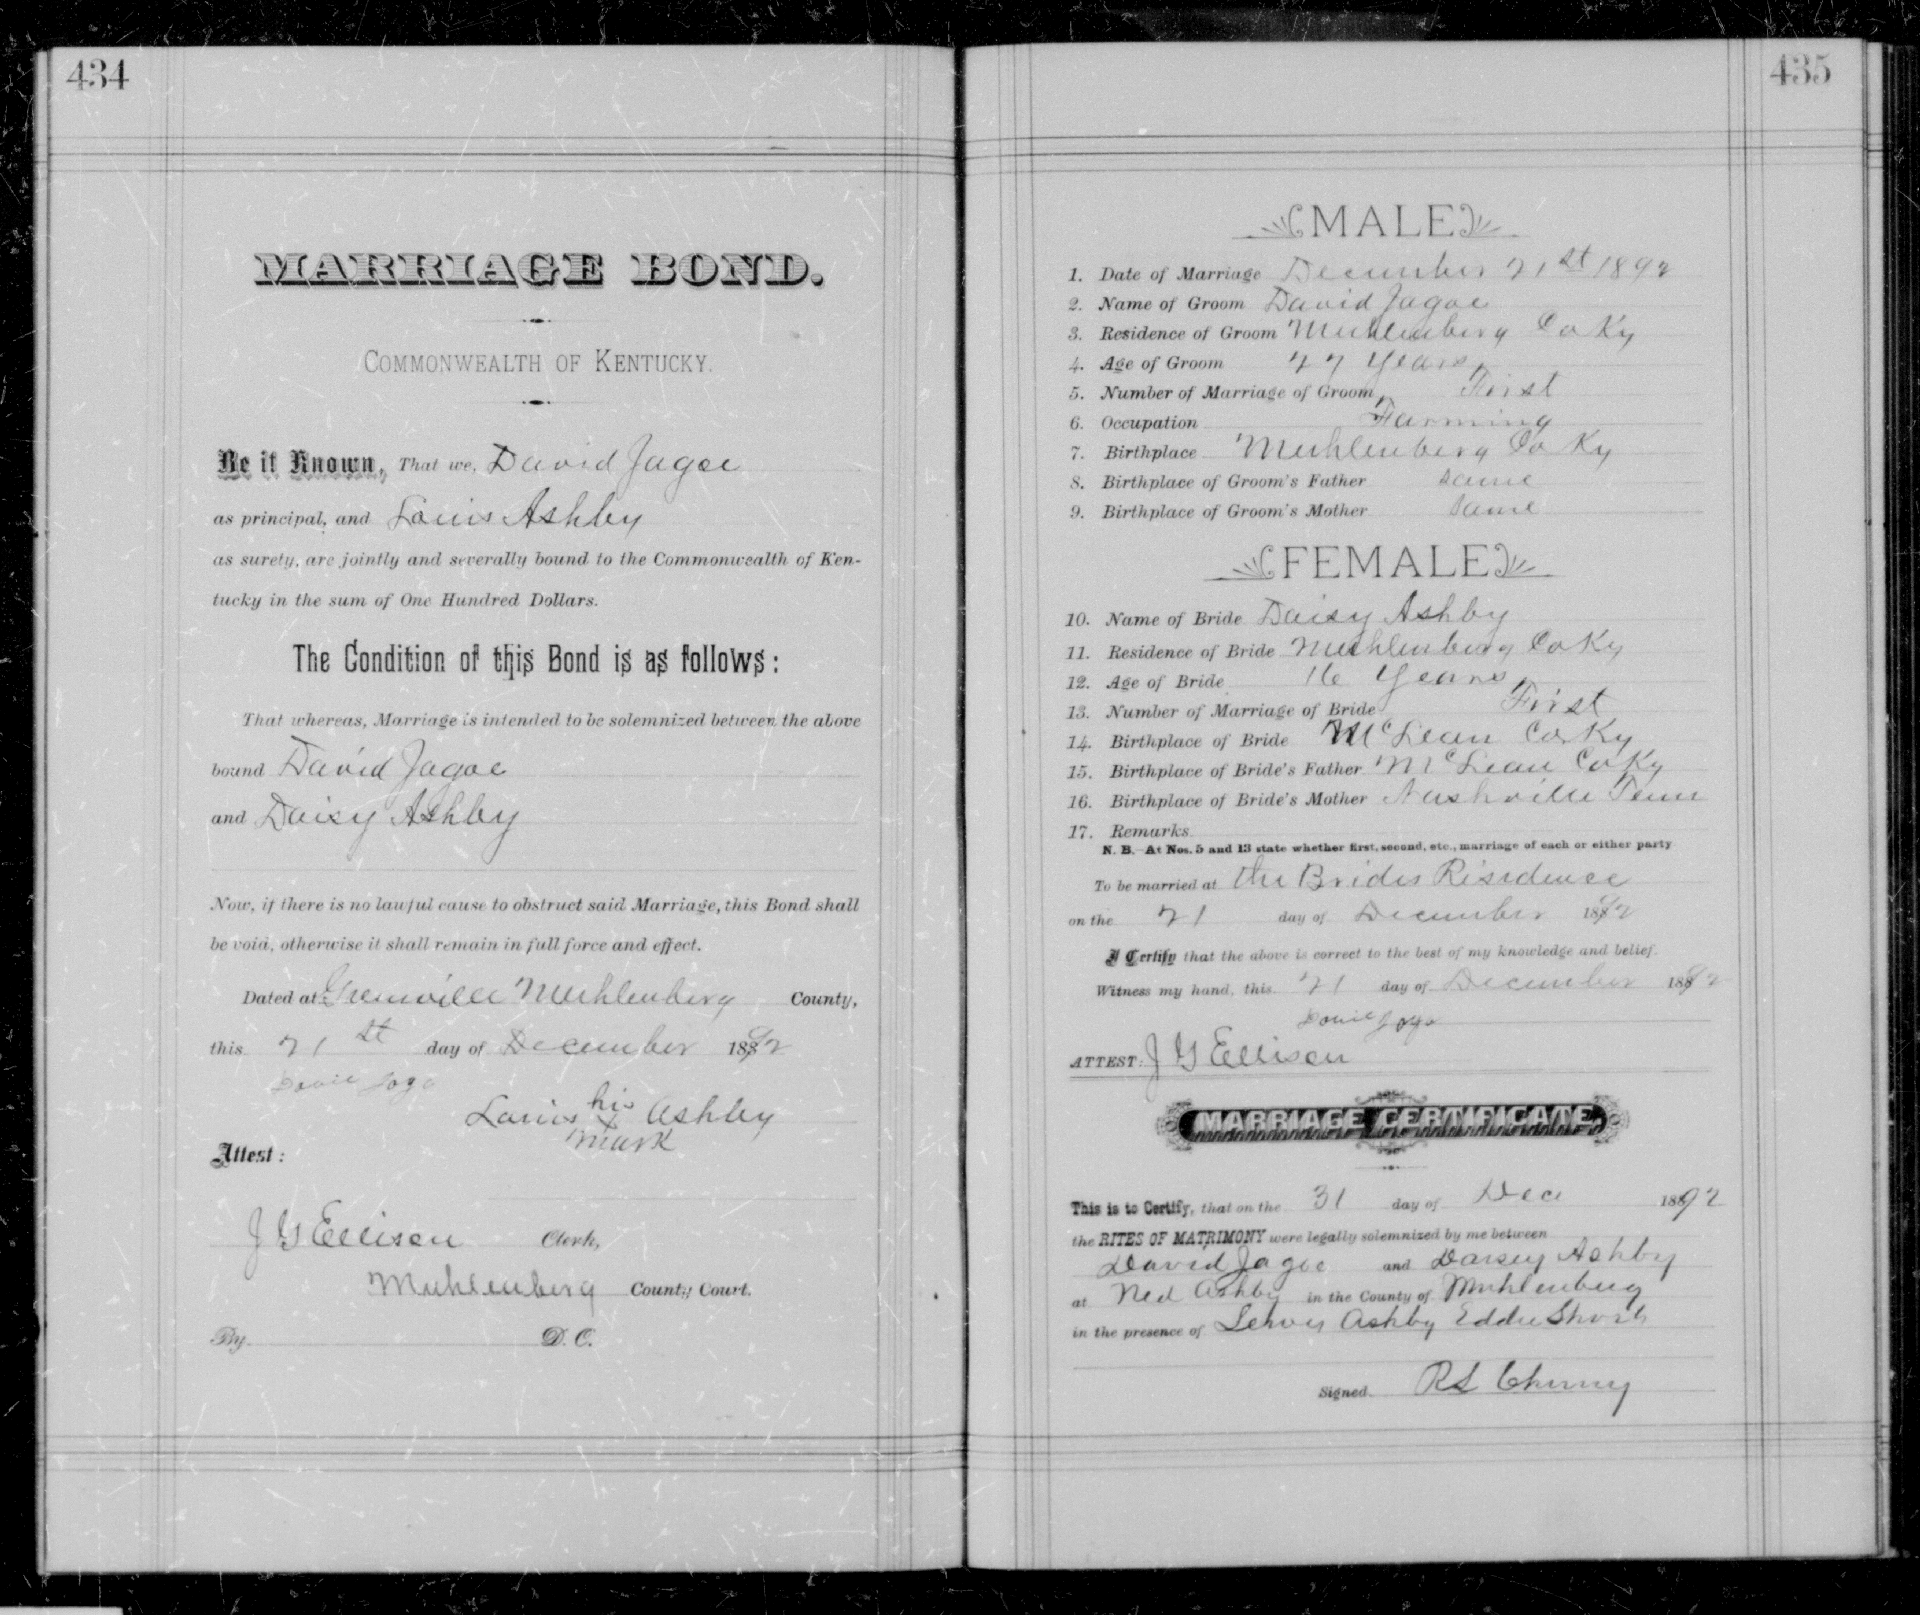 434
MARRIAGE BOND.
COMMONWEALTH OF KENTUCKY.
Be it Known, That we, David Jagoe
as principal, and Louis Ashby
as surety, are jointly and severally bound to the Commonwealth of Ken-
tucky in the sum of One Hundred Dollars.
The Condition of this Bond is as follows:
That whereas, Marriage is intended to be solemnized between the above
bound David Jagoe
and Daisy Ashby
Now, if there is no lawful cause to obstruct said Marriage, this Bond shall
be void, otherwise it shall remain in full force and effect.
Dated at Greenville Muhlenberg County,
this 21st day of December 1892
Louis his x mark Ashby
Attest:
J G Ellison Clerk,
Muhlenberg County Court.
By D. C.
435
MALE
1. Date of Marriage December 21st 1892
2. Name of Groom David Jagoe
3. Residence of Groom Muhlenberg Co Ky
4. Age of Groom 27 Years
5. Number of Marriage of Groom First
6. Occupation Farming
7. Birthplace Muhlenberg Co Ky
8. Birthplace of Groom's Father same
9. Birthplace of Groom's Mother Same
FEMALE
10. Name of Bride Daisy Ashby
11. Residence of Bride Muhlenberg Co Ky
12. Age of Bride 16 Years
13. Number of Marriage of Bride First
14. Birthplace of Bride McLean Co Ky
15. Birthplace of Bride's Father McLean Co Ky
16. Birthplace of Bride's Mother Nashville Tenn
17. Remarks
N. B. At Nos. 5 and 13 state whether first, second, etc., marriage of each or either party
To be married at the Brides Residence
on the 21 day of December 1892
I Certify that the above is correct to the best of my knowledge and belief.
Witness my hand, this 21 day of December 1892
ATTEST: J G Ellison
MARRIAGE CERTIFICATE.
This is to Certify, that on the 31 day of Dec 1892
the RITES OF MATRIMONY were legally solemnized by me between
David Jagoe and Darsey Ashby
at Ned Ashby in the County of Muhlenberg
in the presence of Lewis Ashby Eddie
Signed R L